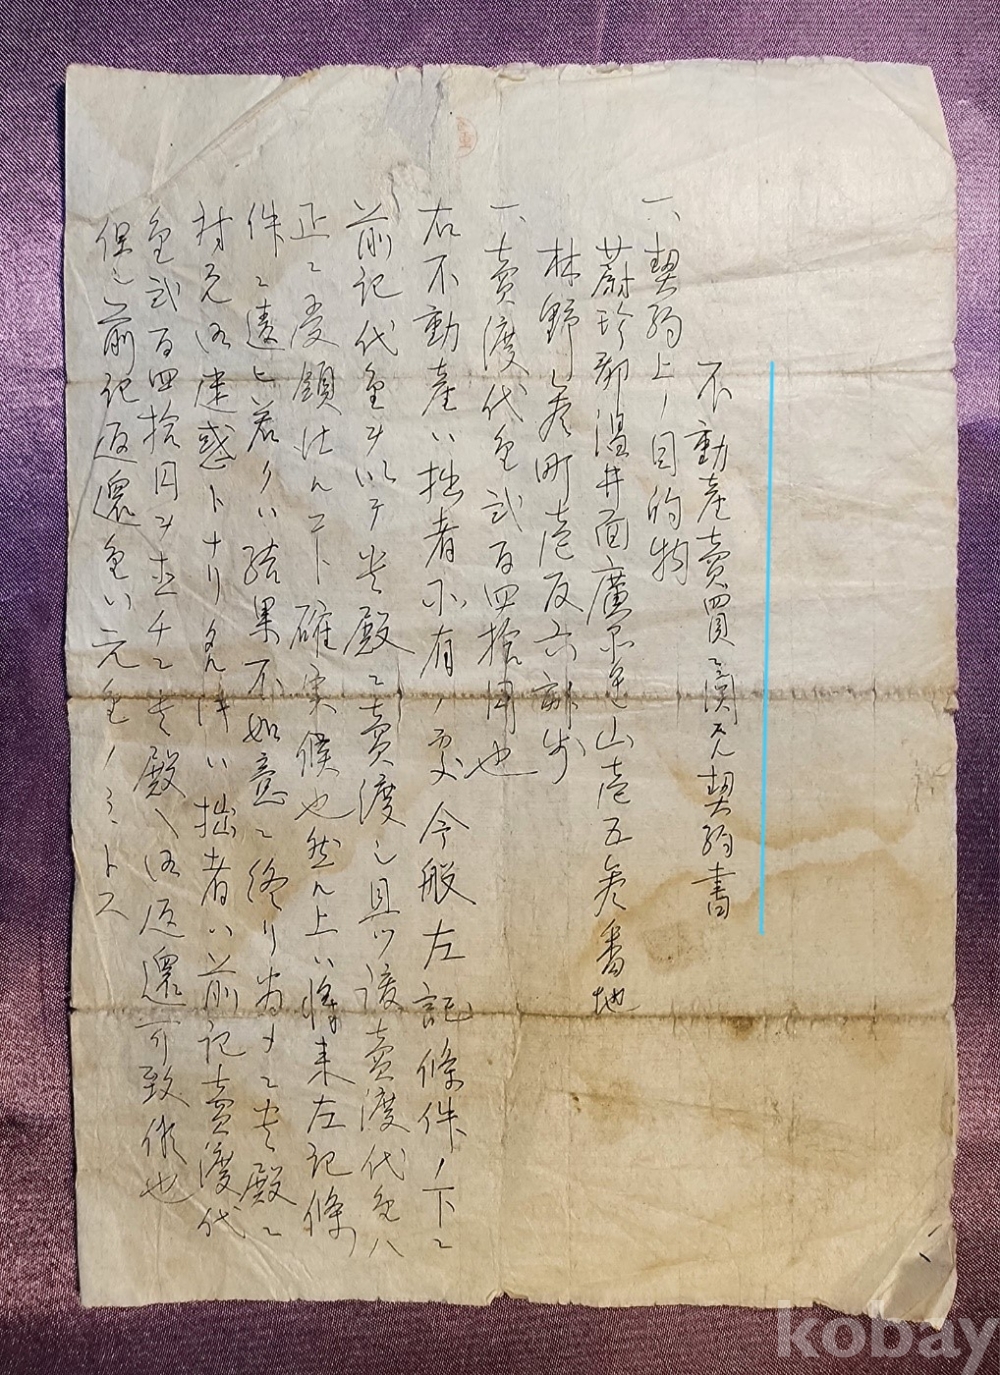 不動産賣買ニ関スル契約書
一、契約上ノ目的物
蔚珍郡温井面廣品里山壱五参番地
林野参町壱反六畝歩
一、賣渡代金弐百四拾円也
右不動産ハ拙者所有ノ処今般左記條件ノ下ニ
前記代金ヲ以テ貴殿ニ賣渡シ且ツ該賣渡代金ハ
正ニ受領仕ルコト確実候也然ル上ハ将来左記條
件ニ違ヒ若クハ結果不如意ニ終リ為メニ貴殿ニ
対スル迷惑トナリ候節ハ拙者ハ前記賣渡代
金弐百四拾円ヲ直チニ貴殿ヘ返還可致候也
但シ前記返還金ハ元金ノミトス
kobay